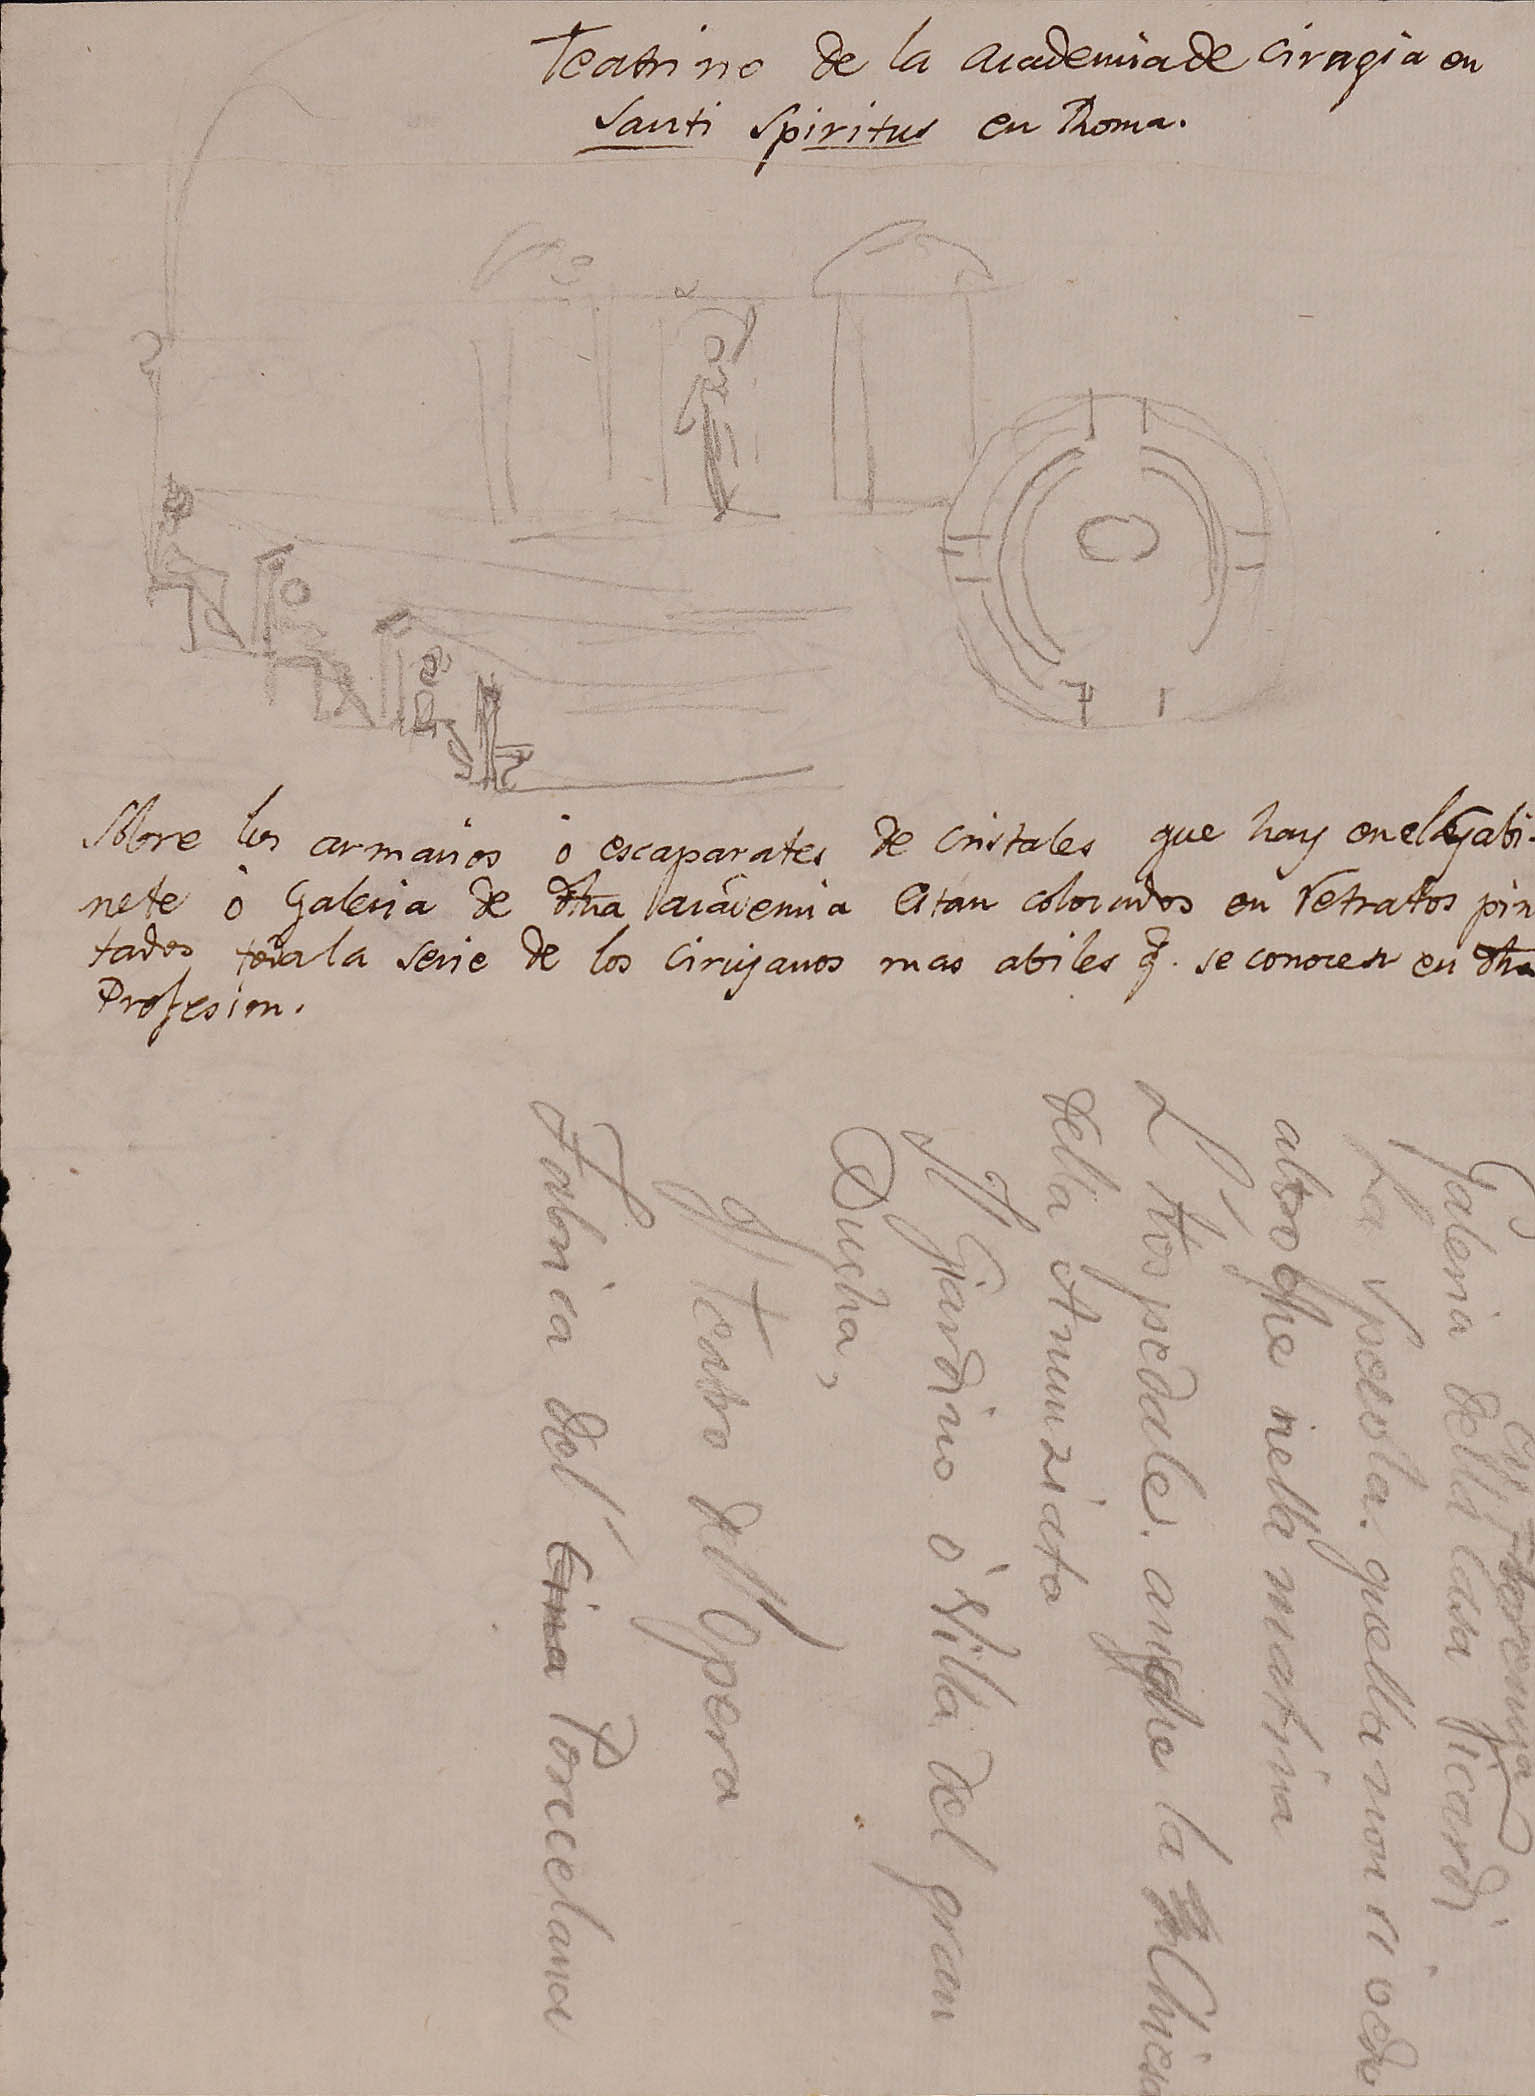 Teatrino de la academia de cirugia en
Santi Spiritus en Rhoma.
Sobre los armarios ó escaparates de cristales que hay en el gabi-
nete ó Galeria de dha academia estan colocados en retratos pin
tados toda la serie de los cirujanos mas abiles q. se conocen en dha
Profesion.
Galeria della Casa Ricardi
La Specola. quella non vi
altro che nella matina
L'Hospedale. anche la Chiesa
della Anunziata
Il Giardino ó Villa del gran
Ducha,
Il Teatro dell Opera
Fabrica del Porcelana